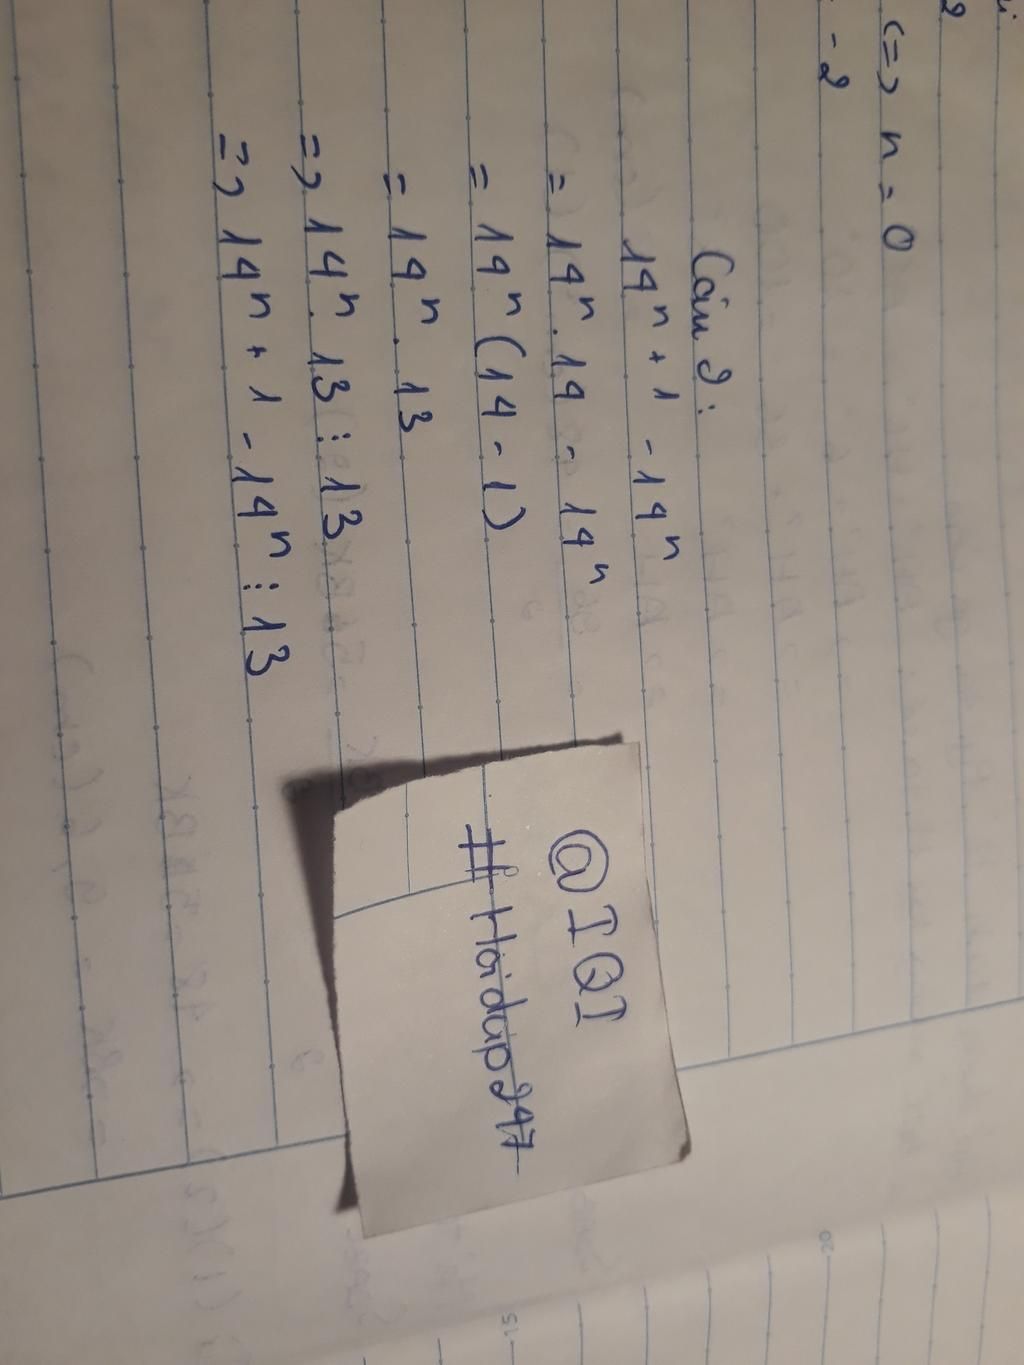 <=> n = 0
- 2
Câu 2:
14ⁿ + 1 - 14ⁿ
= 14ⁿ . 14 - 14ⁿ
= 14ⁿ (14 - 1)
= 14ⁿ . 13
=> 14ⁿ . 13 ⋮ 13
=> 14ⁿ + 1 - 14ⁿ ⋮ 13
@IQI
#Hoidap247
20
15